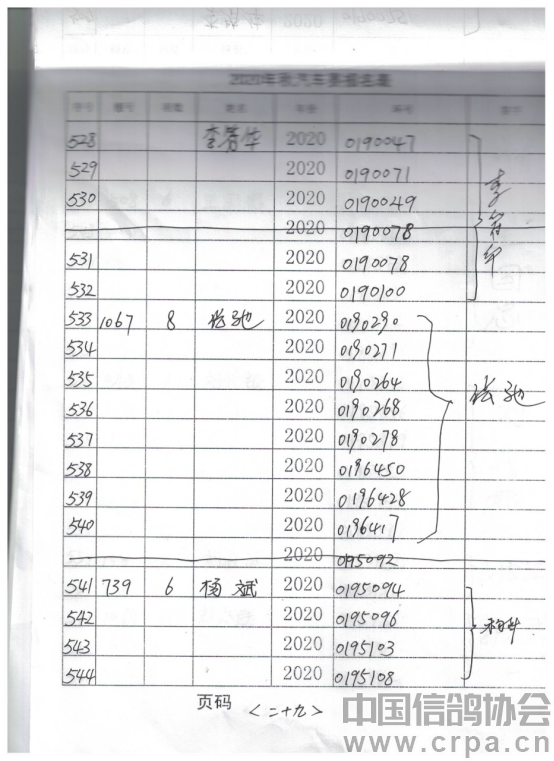 2020年秋汽车赛报名表
528 李 华 2020 0190047
529 2020 0190071
530 2020 0190049
2020 0190078
531 2020 0190078
532 2020 0190100
533 1067 8 张弛 2020 0190290
534 2020 0190271
535 2020 0190264
536 2020 0190268
537 2020 0190278
张弛
538 2020 0196450
539 2020 0196428
540 2020 0196417
2020 0195092
541 739 6 杨斌 2020 0195094
542 2020 0195096
543 2020 0195103
544 2020 0195108
页码 <二十九>
中国信鸽协会
www.crpa.cn